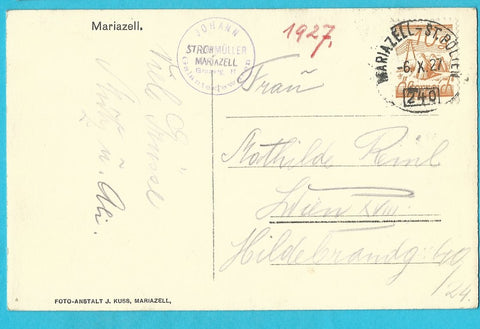 Mariazell.
JOHANN
STROHMÜLLER
MARIAZELL
1927.
MARIAZELL - ST. PÖLTEN
-6.X.27
240
10
Viele Grüsse
u.
Frau
Mathilde
Wien XVIII.
Hildebrandg. 40
/24.
FOTO-ANSTALT J. KUSS, MARIAZELL,